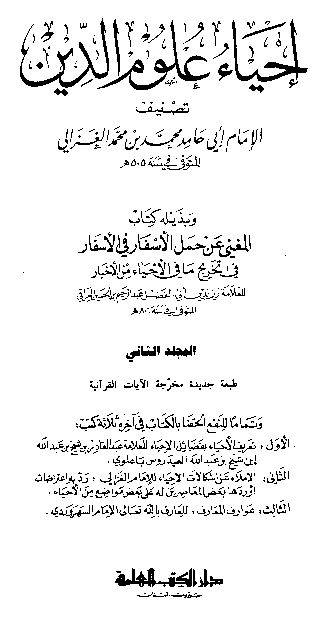 إحياء علوم الدين
تصنيف
الإمام أبي حامد محمد بن محمد الغزالي
المتوفى في سنة ٥٠٥ هـ
وبذيله كتاب
المغني عن حمل الأسفار في الأسفار
في تخريج ما في الأحياء من الأخبار
للعلامة زين الدين أبي الفضل عبد الرحيم بن الحسين العراقي
المتوفى في سنة ٨٠٦ هـ
المجلد الثاني
طبعة جديدة مخرجة الآيات القرآنية
وتماما للنفع ألحقنا بالكتاب في آخره ثلاثة كتب :
الأول : تعريف الأحياء بفضائل الإحياء للعلامة عبد القادر بن شيخ بن عبد الله
ابن شيخ بن عبد الله العيدروس باعلوي .
الثاني : الإملاء عن إشكالات الإحياء للإمام الغزالي ، رد به اعتراضات
أوردها بعض المعاصرين له على بعض مواضيع من الأحياء .
الثالث : عوارف المعارف ، للعارف بالله تعالى الإمام السهروردي .
دار الكتب العلمية
بيروت - لبنان